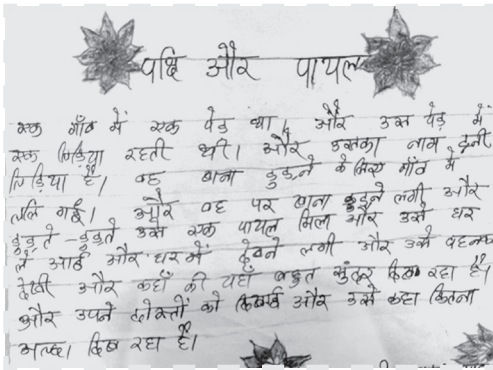 पक्षि और पायल
एक गाँव में एक पेड़ था। और उस पेड़ में
एक चिड़िया रहती थी। और उसका नाम
चिड़िया है। वह खाना ढुढ़ने के लिए गाँव में
गई। और वह पर खाना ढुढ़ने लगी और
ढुढ़ते - ढुढ़ते उसे एक पायल मिला और उसे घर
ले आई और घर में देखने लगी और उसे पहनकर
देखी और कहाँ की यहाँ बहुत सुंदर दिख रहा है।
और उपने दोस्तों को दिखाई और उसे कहा कितना
अच्छा दिख रहा है।